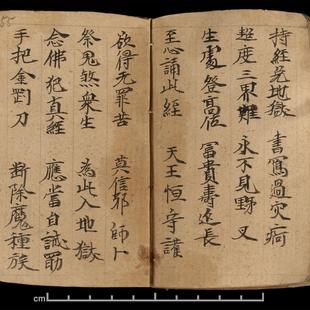 持經免地獄 書寫過灾疴
超度三界難 永不見野叉
生處登高位 富貴壽延長
至心誦此經 天王恒守護
欲得无罪苦 莫信邪師卜
祭鬼煞衆生 為此入地獄
念佛犯真經 應當自誡勗
手把金剛刀 斷除魔種族
cm